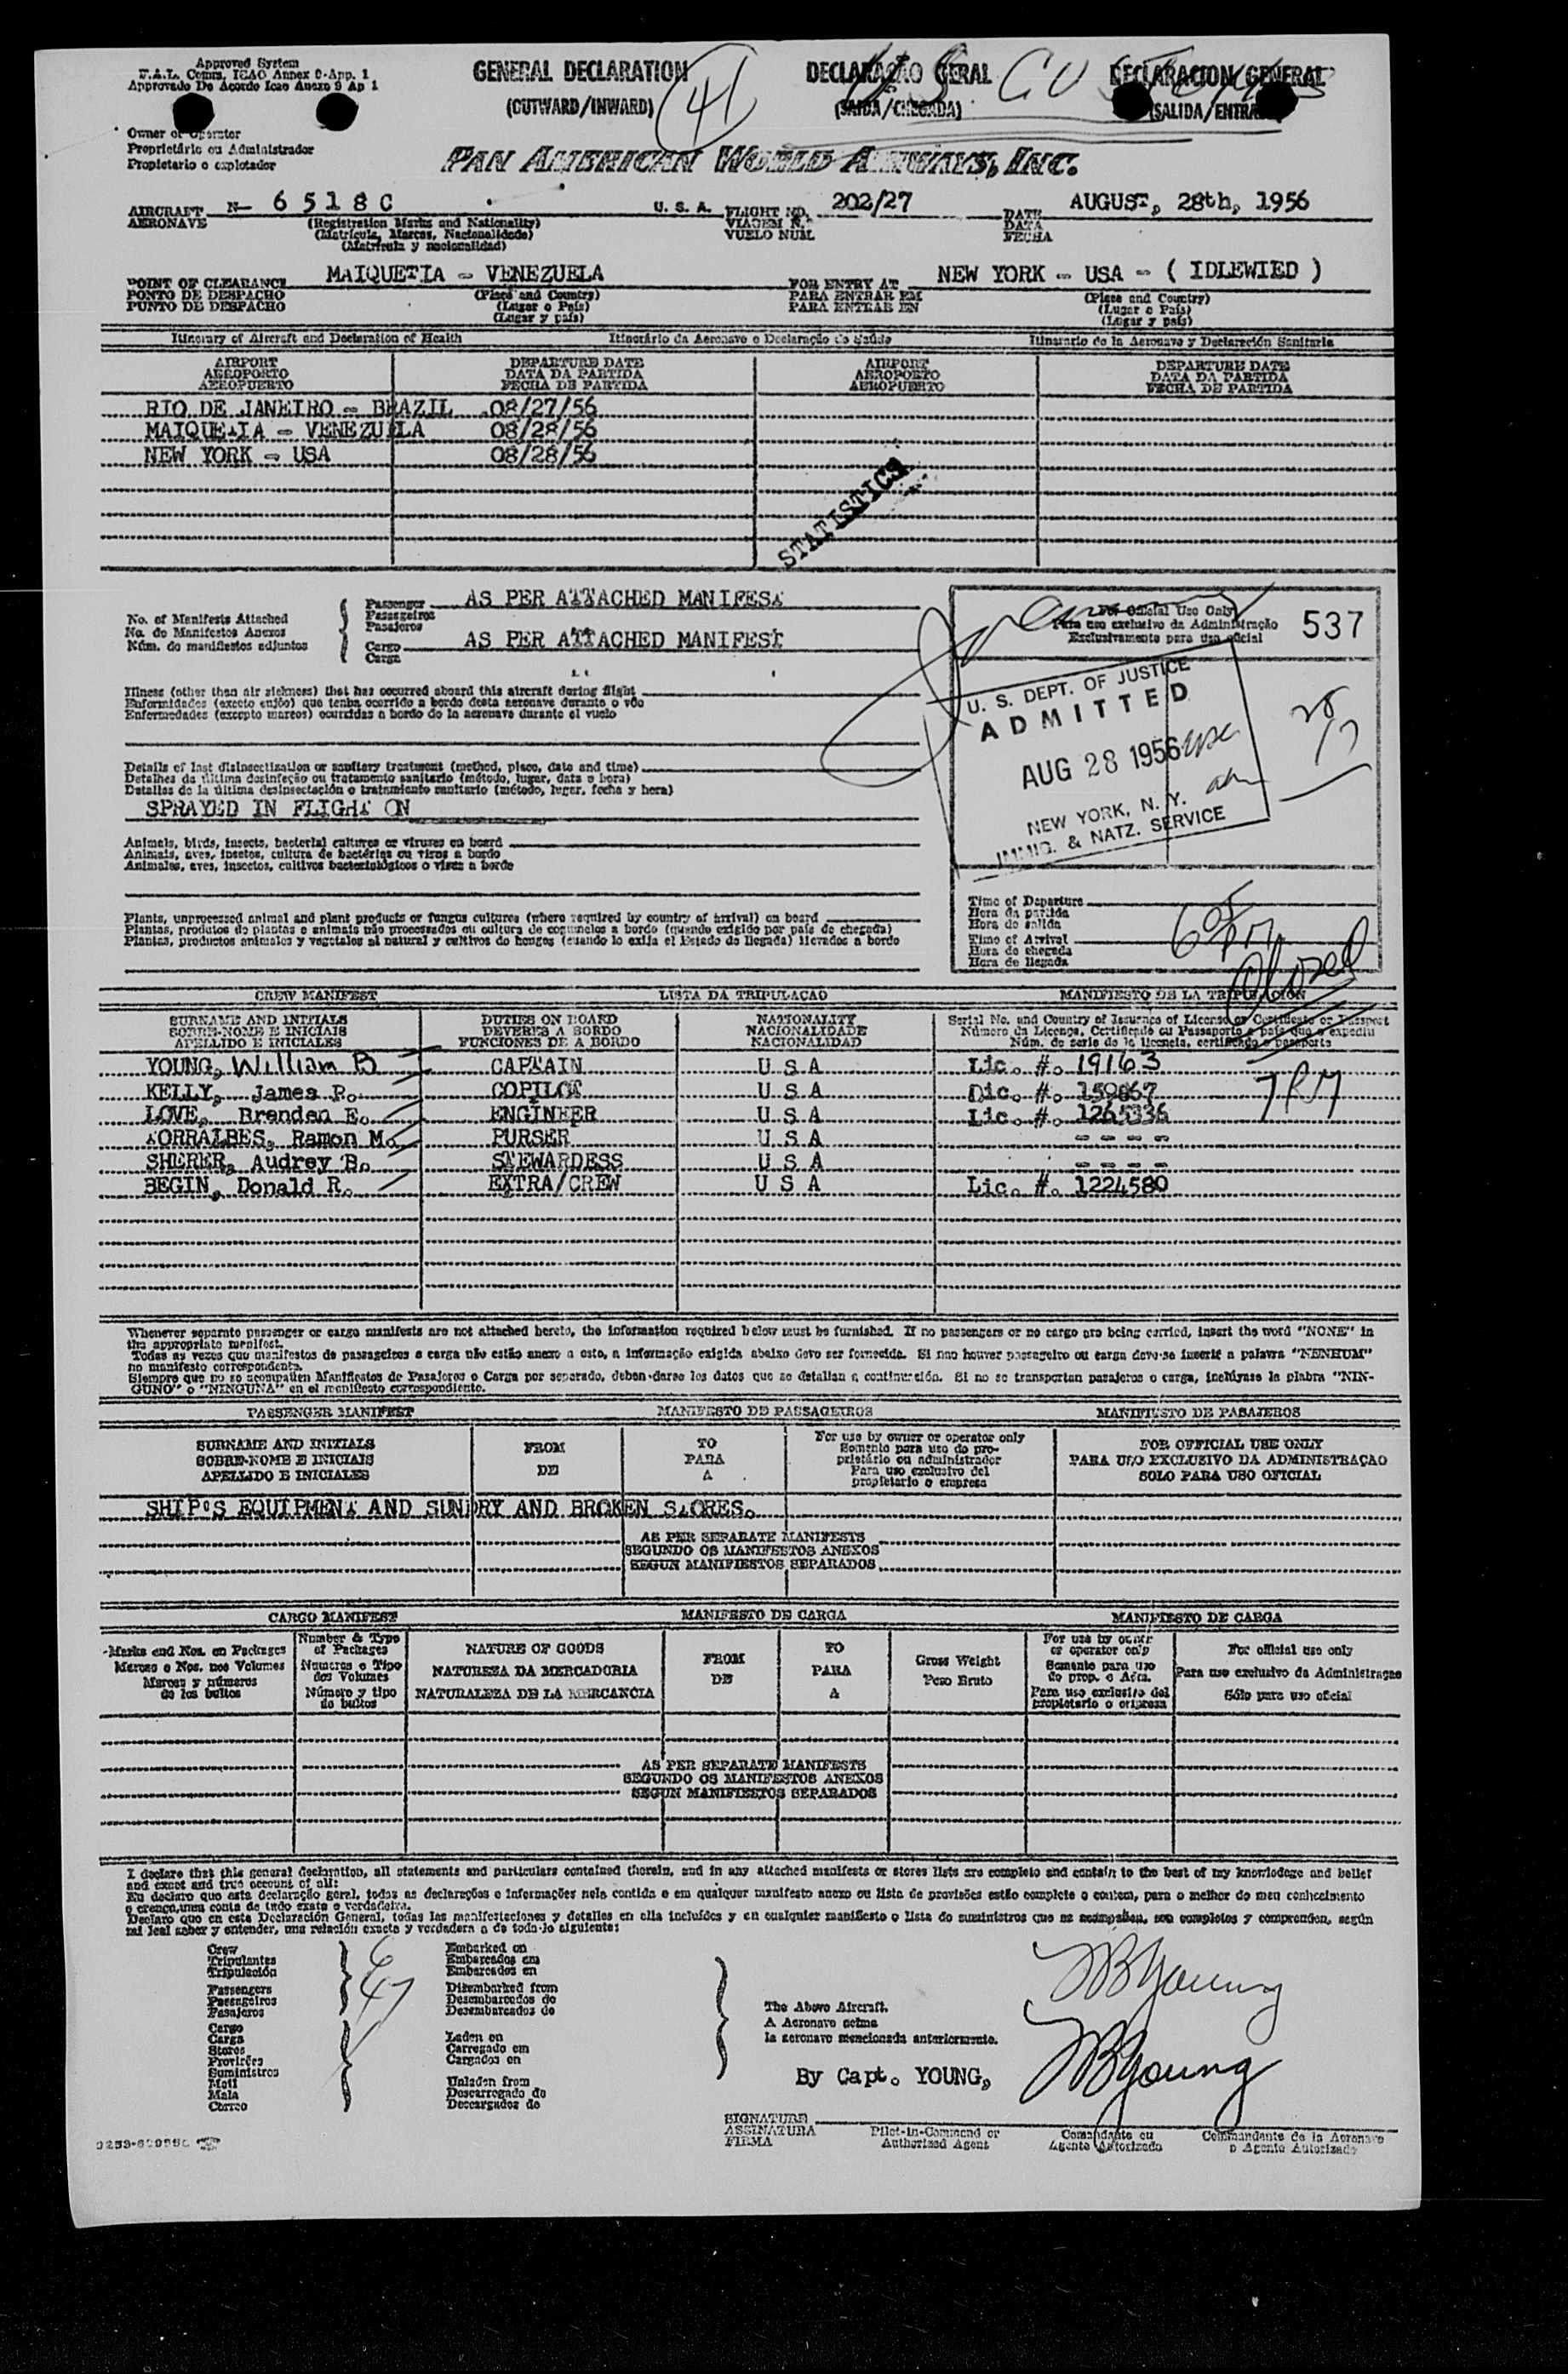 Approved System
F.A.L. Comm. ICAO Annex 9-App. 1
Approvado De Acordo Icao Anexo 9 Ap 1
GENERAL DECLARATION
(OUTWARD/INWARD)
41
DECLARAÇAO GERAL
(SAIDA/CHEGADA)
DECLARACION GENERAL
(SALIDA/ENTRADA)
US CUSTOMS
Owner or Operator
Proprietário ou Administrador
Propietario o explotador
PAN AMERICAN WORLD AIRWAYS, INC.
AIRCRAFT N- 6518C U. S. A. FLIGHT NO. 202/27 DATE AUGUST, 28th, 1956
AERONAVE (Registration Marks and Nationality) VIAGEM N.º DATA
(Matrícula, Marcas, Nacionalidade) VUELO NUM. FECHA
(Matrícula y nacionalidad)
POINT OF CLEARANCE MAIQUETIA - VENEZUELA FOR ENTRY AT NEW YORK - USA - ( IDLEWIED )
PONTO DE DESPACHO (Place and Country) PARA ENTRAR EM (Place and Country)
PUNTO DE DESPACHO (Lugar o País) PARA ENTRAR EN (Lugar o País)
(Lugar y país) (Lugar y país)
Itinerary of Aircraft and Declaration of Health Itinerário da Aeronave e Declaração de Saúde Itinerario de la Aeronave y Declaración Sanitaria
AIRPORT DEPARTURE DATE AIRPORT DEPARTURE DATE
AEROPORTO DATA DA PARTIDA AEROPORTO DATA DA PARTIDA
AEROPUERTO FECHA DE PARTIDA AEROPUERTO FECHA DE PARTIDA
RIO DE JANEIRO - BRAZIL 08/27/56
MAIQUETIA - VENEZUELA 08/28/56
NEW YORK - USA 08/28/56
STATISTICS
No. of Manifests Attached
No. de Manifestos Anexos
Núm. de manifiestos adjuntos
Passenger AS PER ATTACHED MANIFEST
Passageiros
Pasajeros
Cargo AS PER ATTACHED MANIFEST
Carga
For Official Use Only
Para uso exclusivo da Administração
Exclusivamente para uso oficial
537
U. S. DEPT. OF JUSTICE
ADMITTED
AUG 28 1956
NEW YORK, N. Y.
IMMIG. & NATZ. SERVICE
Illness (other than air sickness) that has occurred aboard this aircraft during flight
Enfermidades (exceto enjôo) que tenha ocorrido a bordo desta aeronave durante o vôo
Enfermedades (excepto mareos) ocurridas a bordo de la aeronave durante el vuelo
Details of last disinsectization or sanitary treatment (method, place, date and time)
Detalhes da última desinfeção ou tratamento sanitario (método, lugar, data e hora)
Detallas de la última desinsectación o tratamiento sanitario (método, lugar, fecha y hora)
SPRAYED IN FLIGHT ON
Animals, birds, insects, bacterial cultures or viruses on board
Animais, aves, insetos, cultura de bactérias ou virus a bordo
Animales, aves, insectos, cultivos bacteriológicos o virus a borde
Plants, unprocessed animal and plant products or fungus cultures (where required by country of arrival) on board
Plantas, produtos de plantas e animais não processados ou cultura de cogumelos a bordo (quando exigido por país de chegada)
Plantas, productos animales y vegetales al natural y cultivos de hongos (cuando lo exija el Estado de llegada) llevados a bordo
Time of Departure
Hora da partida
Hora de salida
Time of Arrival
Hora de chegada
Hora de llegada
CREW MANIFEST LISTA DA TRIPULACAO MANIFIESTO DE LA TRIPULACION
SURNAME AND INITIALS DUTIES ON BOARD NATIONALITY Serial No. and Country of Issuance of License or Certificate or Passport
SOBRE-NOME E INICIAIS DEVERES A BORDO NACIONALIDADE Número da Licença, Certificado ou Passaporto e país que o expediu
APELLIDO E INICIALES FUNCIONES DE A BORDO NACIONALIDAD Núm. de serie de la licencia, certificado o pasaporte
YOUNG, William B CAPTAIN U S A Lic. #. 19163
KELLY, James P. COPILOT U S A Lic. #. 159867
LOVE, Brendan E. ENGINEER U S A Lic. #. 1265336
TORRALBES, Ramon M. PURSER U S A - - - -
SHERER, Audrey B. STEWARDESS U S A - - - -
BEGIN, Donald R. EXTRA/CREW U S A Lic. #. 1224580
Whenever separate passenger or cargo manifests are not attached hereto, the information required below must be furnished. If no passengers or no cargo are being carried, insert the word "NONE" in
the appropriate manifest.
Todas as vezes que manifestos de passageiros e carga não estão anexo a esto, a informação exigida abaixo devo ser fornecida. Si nao houver passageiro ou carga deve-se inserir a palavra "NENHUM"
no manifesto correspondente.
Siempre que no se acompañen Manifiestos de Pasajeros o Carga por separado, deben darse los datos que se detallan a continuación. Si no se transportan pasajeros o carga, inclúyase la plabra "NIN-
GUNO" o "NINGUNA" en el manifiesto correspondiente.
PASSENGER MANIFEST MANIFESTO DE PASSAGEIROS MANIFIESTO DE PASAJEROS
SURNAME AND INITIALS FROM TO For use by owner or operator only FOR OFFICIAL USE ONLY
SOBRE-NOME E INICIAIS DE PARA Somente para uso do pro- PARA USO EXCLUSIVO DA ADMINISTRAÇAO
APELLIDO E INICIALES A prietário ou administrador SOLO PARA USO OFICIAL
Para uso exclusivo del
propietario o empresa
SHIP'S EQUIPMENT AND SUNDRY AND BROKEN STORES.
AS PER SEPARATE MANIFESTS
SEGUNDO OS MANIFESTOS ANEXOS
SEGUN MANIFIESTOS SEPARADOS
CARGO MANIFEST MANIFESTO DE CARGA MANIFIESTO DE CARGA
Marks and Nos. on Packages Number & Type of Packages NATURE OF GOODS FROM TO Gross Weight For use by owner or operator only For official use only
Marcas e Nos. nos Volumes Numeros e Tipo dos Volumes NATUREZA DA MERCADORIA DE PARA Peso Bruto Somente para uso do prop. e Adm. Para uso exclusivo da Administraçao
Marcas y números de los bultos Número y tipo de bultos NATURALEZA DE LA MERCANCIA A Para uso exclusivo del propietario o empresa Sólo para uso oficial
AS PER SEPARATE MANIFESTS
SEGUNDO OS MANIFESTOS ANEXOS
SEGUN MANIFIESTOS SEPARADOS
I declare that this general declaration, all statements and particulars contained therein, and in any attached manifests or stores lists are complete and contain to the best of my knowledge and belief
and exact and true account of all:
Eu declaro que esta declaração geral, todos as declarações e informações nela contida e em qualquer manifesto anexo ou lista de provisões estão complete e contem, para o melhor do meu conhecimento
e crença, uma conta de tudo exata e verdadeira.
Declaro que en esta Declaración General, todas las manifestaciones y detalles en ella incluídos y en cualquier manifiesto o lista de suministros que se acompañen, son completos y comprenden, según
mi leal saber y entender, una relación exacta y verdadera a de todo lo siguiente:
Crew
Tripulantes
Tripulación
6
Passengers
Passageiros
Pasajeros
47
Cargo
Carga
Stores
Provisões
Suministros
Mail
Mala
Correo
Embarked on
Embarcados em
Embarcados en
Disembarked from
Desembarcados do
Desembarcados de
Laden on
Carregado em
Cargados en
Unladen from
Descarregado do
Descargados de
The Above Aircraft.
A Aeronave acima
la aeronave mencionada anteriormente.
WB Young
By Capt. YOUNG,
WB Young
SIGNATURE
ASSINATURA
FIRMA
Pilot-in-Command or
Authorized Agent
Comandante ou
Agente Autorizado
Commandante de la Aeronave
o Agente Autorizado